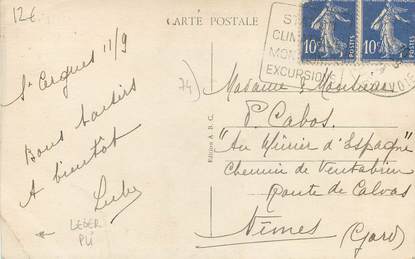 12€
CARTE POSTALE
St Cergues 11/9
Bons baisers
A bientôt
LEGER
PLI
74)
Edition A.B.C.
EXCURSIONS
10c POSTES
10c POSTES
Madame & Monsieur
P. Cabos
"Au Mûrier d'Espagne"
Chemin de Ventabren
route de Calvas
Nîmes
(Gard)